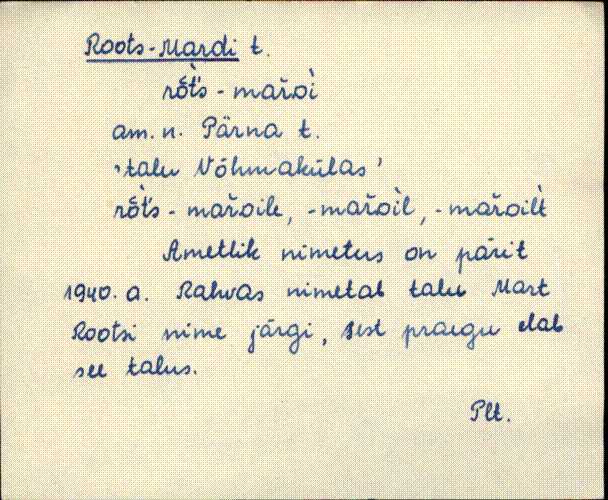 Roots-Mardi t.
rō̬t̀'s - mař̌oì
am. n. Pärna t.
'talu Nõhmakülas'
rō̬t̀'s - mařoile, -mařoìl, -mařoilt̀
Ametlik nimetus on pärit
1940. a. Rahvas nimetab talu Mart
Rootsi nime järgi, sest praegu elab
see talus.
Plt.